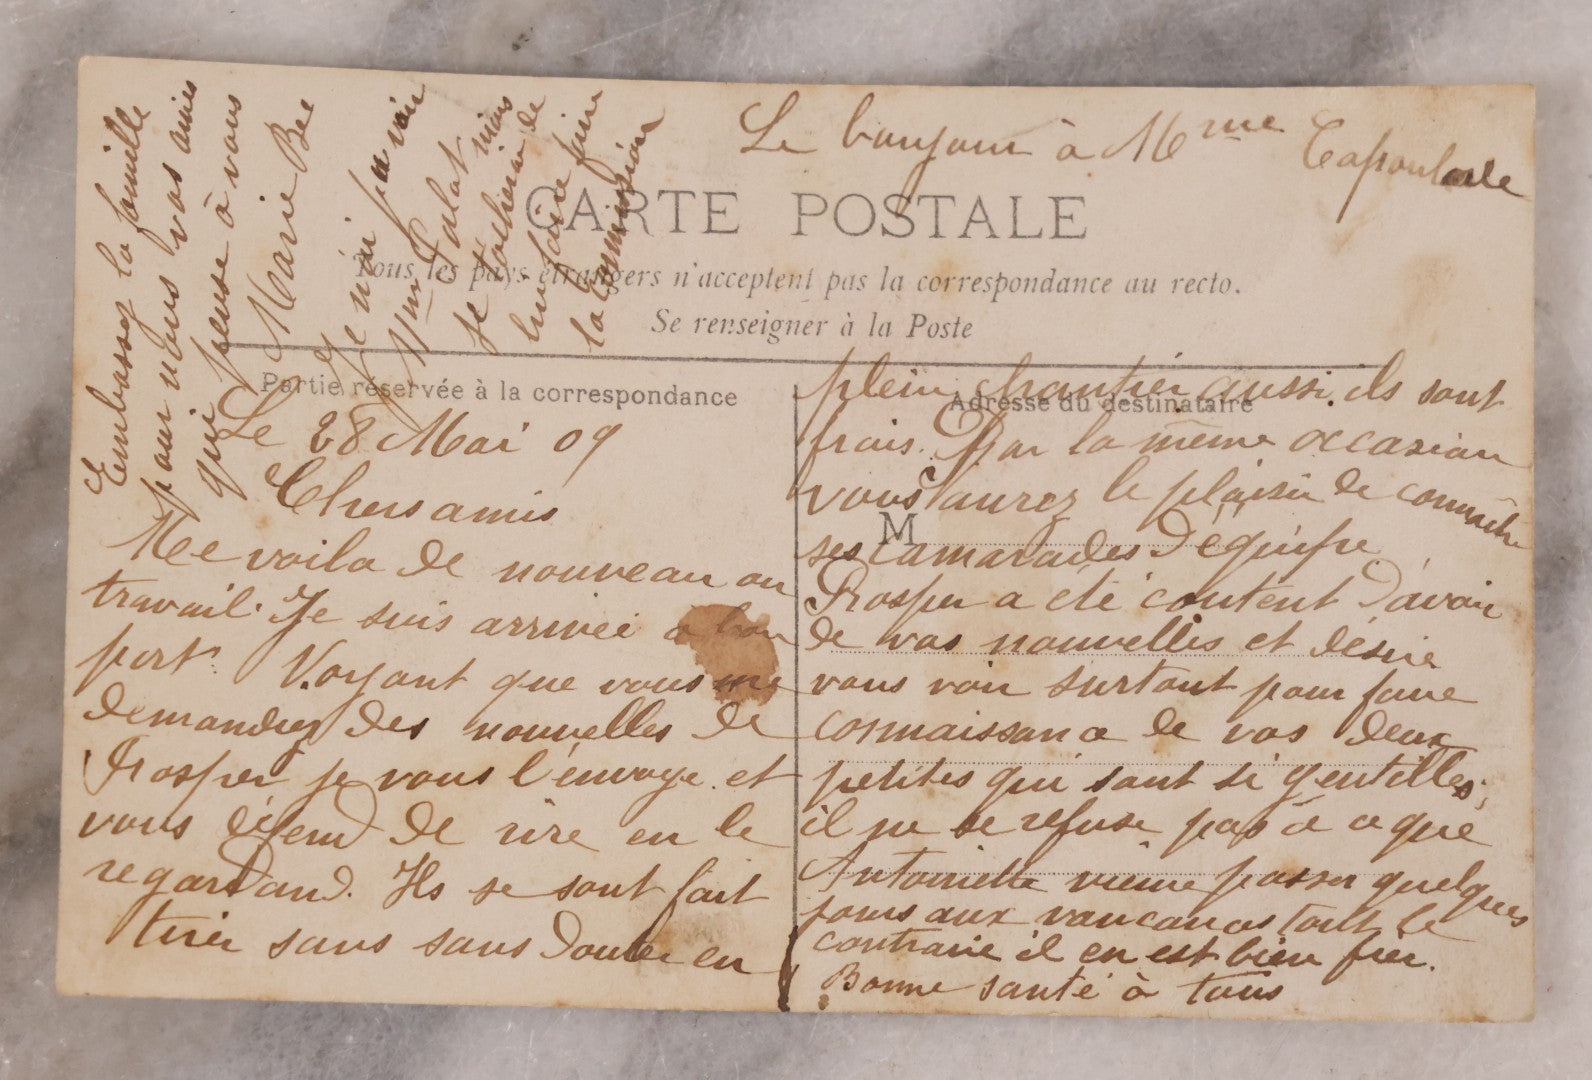 Le bonjour à Mme
CARTE POSTALE
Tous les pays étrangers n'acceptent pas la correspondance au recto.
Se renseigner à la Poste
Partie réservée à la correspondance
Adresse du destinataire
M
Le 28 Mai 09
Chers amis
Me voila de nouveau au
travail. Je suis arrivée a bon
port. Voyant que vous me
demandiez des nouvelles de
Prosper je vous l'envoye et
vous défend de rire en le
regardand. Ils se sont fait
tirer sans sans douter en
plein chantier aussi ils sont
frais. Par la même occasion
vous aurez le plaisir de connaitre
ses camarades d'équipe.
Prosper a été content d'avoir
de vos nouvelles et désire
vous voir surtout pour faire
connaissance de vos deux
petites qui sont si gentilles;
il ne se refuse pas à ce que
Antoinette vienne passer quelques
jours aux vancances tout le
contraire il en est bien fier.
Bonne santé à tous
Embrassez la famille
pour nous vos amies
qui pense à vous
Marie Bee
Je n'ai pu voir
Mme mais
je de
lui faire faire
la commission